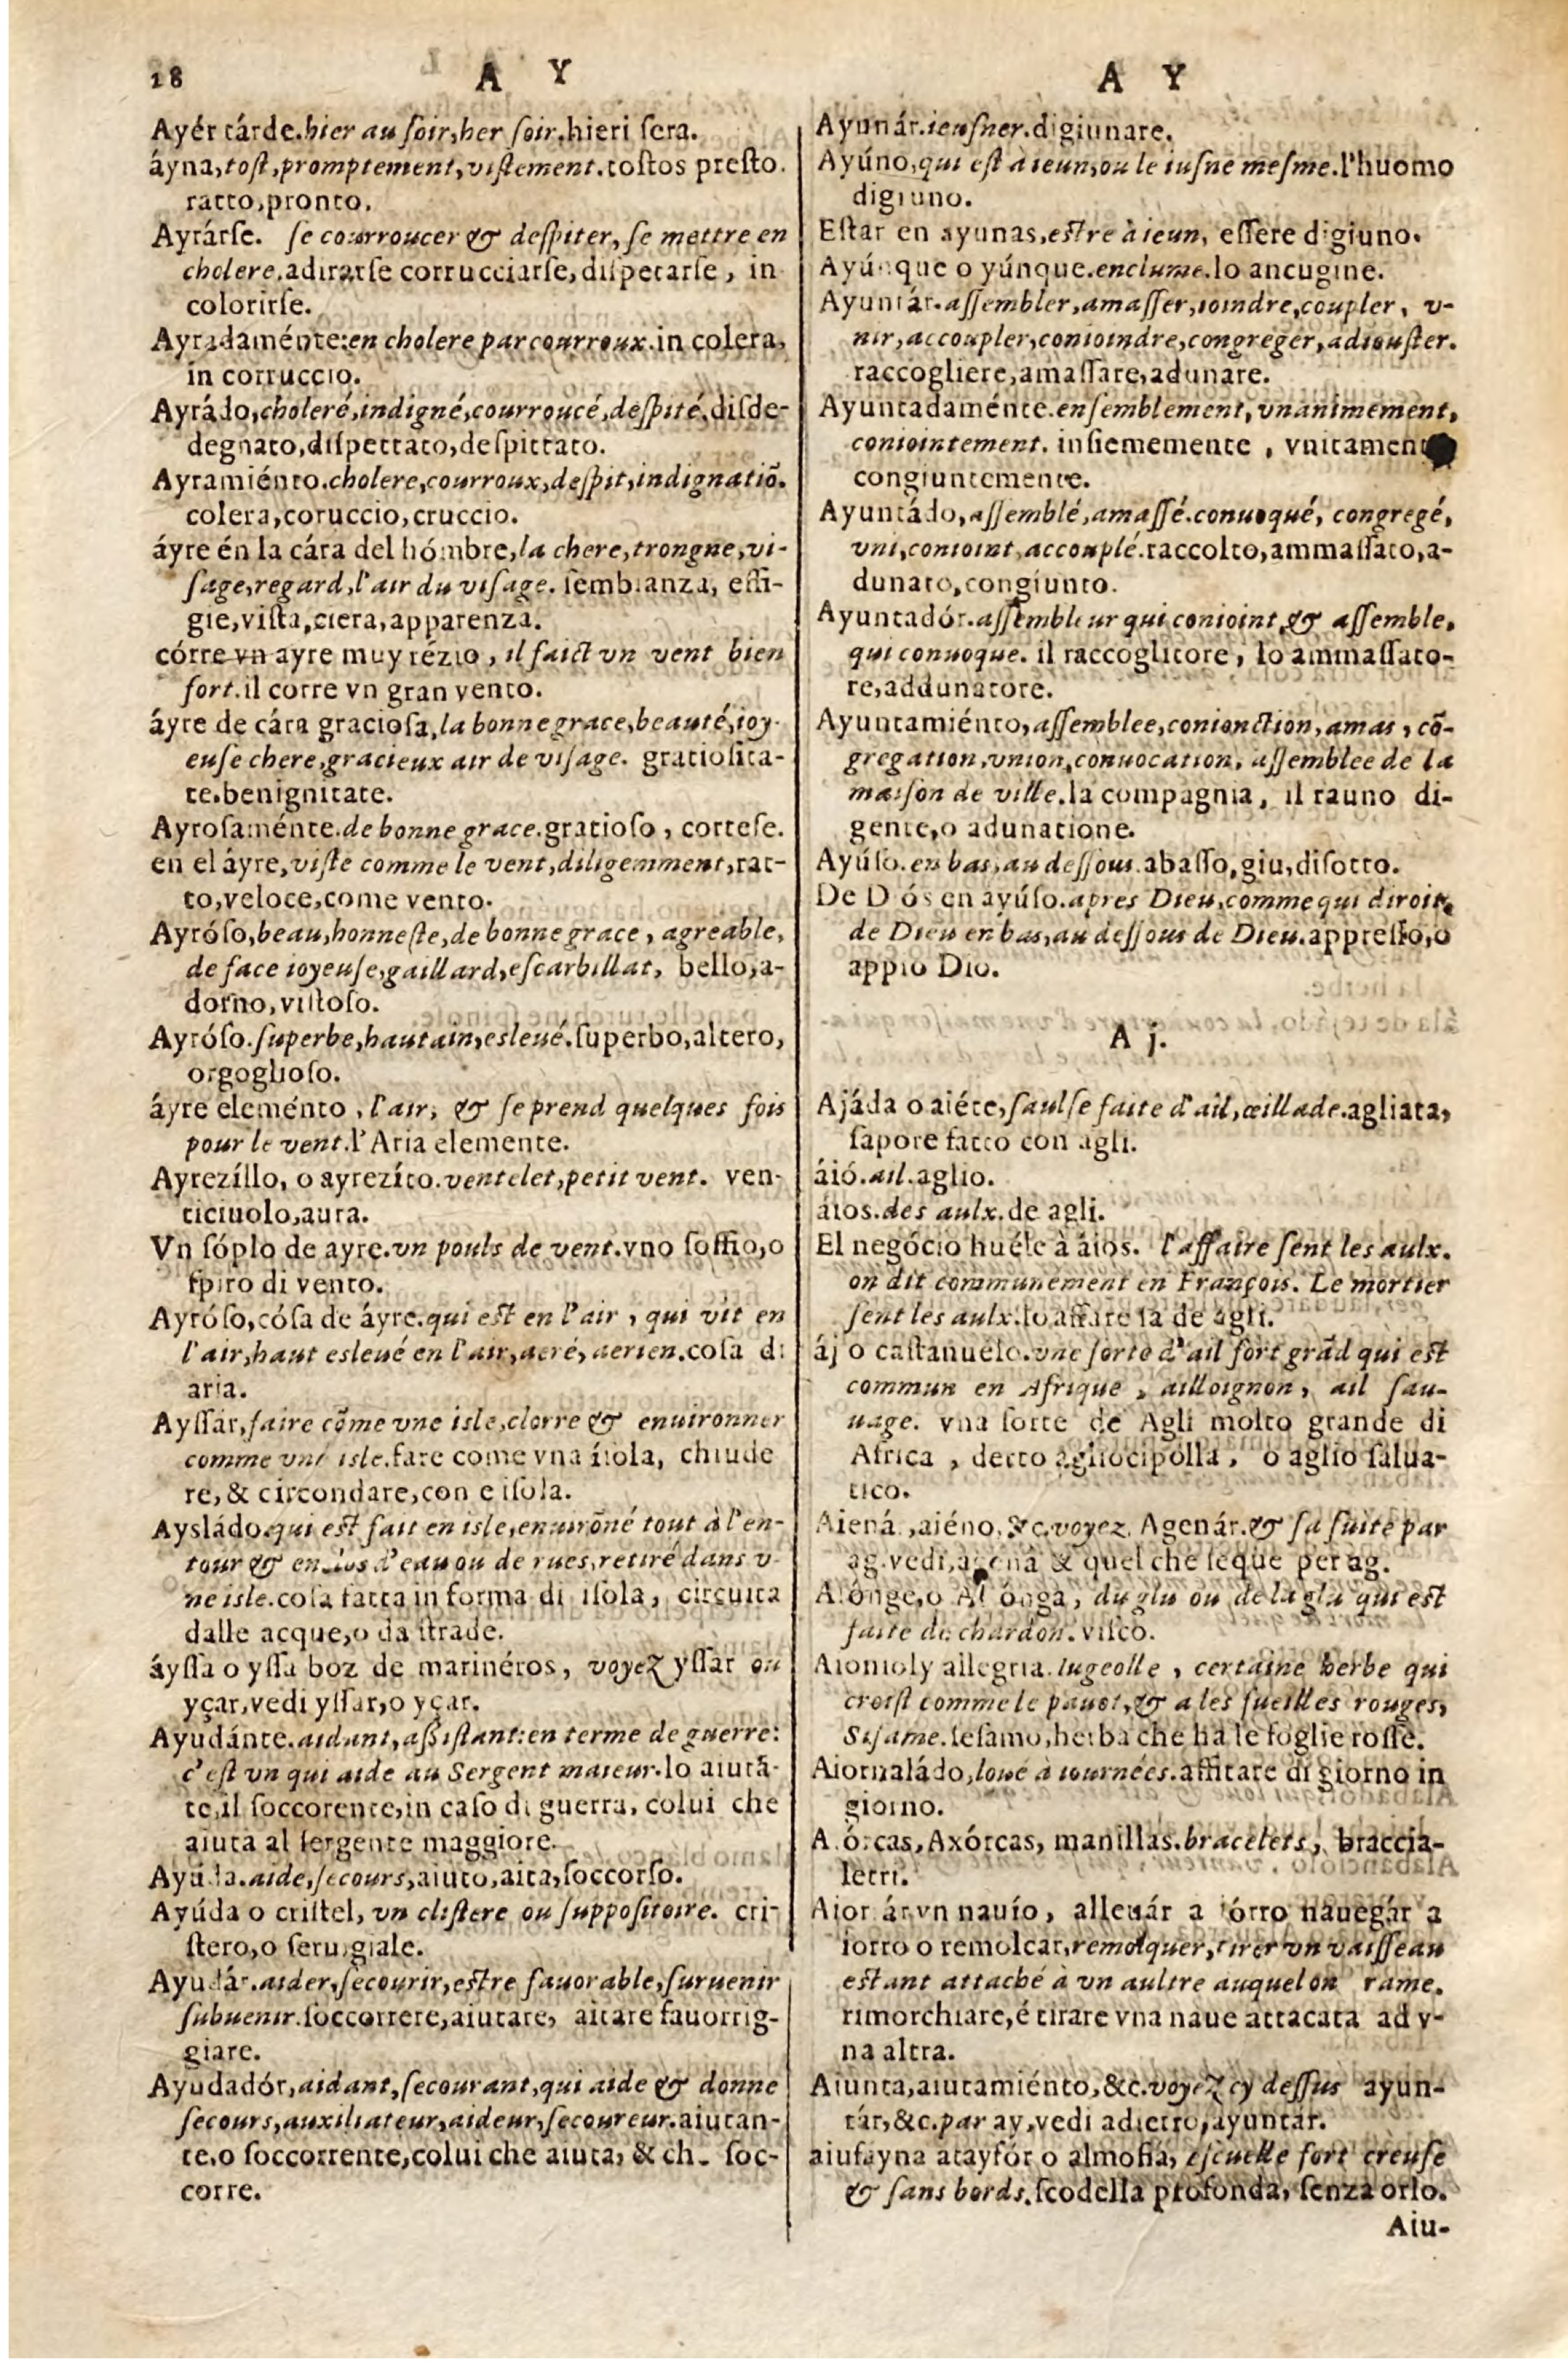 18 A Y
Ayér tárde.hier au ſoir,her ſoir.hieri ſera.
áyna,toſt,promptement,viſtement.toſtos preſto.
ratto,pronto.
Ayrárſe. ſe courroucer & deſpiter, ſe mettre en
cholere.adirarſe corrucciarſe,diſpetarſe, in
colorirſe.
Ayradaménte:en cholere par courroux.in colera,
in corruccio.
Ayrádo,choleré,indigné,courroucé,deſpité.diſde-
degnato,diſpettato,deſpittato.
Ayramiénto.cholere,courroux,deſpit,indignatiõ.
colera,coruccio,cruccio.
áyre én la cára del hómbre,la chere,trongne,vi-
ſage,regard,l'air du viſage. ſembianza, effi-
gie,viſta,ciera,apparenza.
córre vn ayre muy rézio, il faict vn vent bien
fort.il corre vn gran vento.
áyre de cára gracioſa,la bonne grace,beauté,ioy-
euſe chere,gracieux air de viſage. gratioſita-
te.benignitate.
Ayroſaménte.de bonne grace.gratioſo, corteſe.
en el áyre,viſte comme le vent,diligemment,rat-
to,veloce,come vento.
Ayróſo,beau,honneſte,de bonne grace, agreable,
de face ioyeuſe,gaillard,eſcarbillat, bello,a-
dorno,viſtoſo.
Ayróſo.ſuperbe,hautain,esleué.ſuperbo,altero,
orgoglioſo.
áyre eleménto, l'air, & ſe prend quelques fois
pour le vent.l'Aria elemente.
Ayrezíllo, o ayrezíto.ventelet,petit vent. ven-
ticiuolo,aura.
Vn ſóplo de ayre.vn pouls de vent.vno ſoffio,o
ſpiro di vento.
Ayróſo,cóſa de áyre.qui est en l'air, qui vit en
l'air,haut esleué en l'air,aeré,aerien.coſa di
aria.
Ayſſár,faire cõme vne isle,clorre & enuironner
comme vne isle.fare come vna iſola, chiude
re,& circondare,con e iſola.
Aysládo.qui est fait en isle,enuirõné tout à l'en-
tour & en dos d'eau ou de rues,retiré dans v-
ne isle.coſa fatta in forma di iſola, circuita
dalle acque,o da ſtrade.
áyſſa o yſſa boz de marinéros, voyez yſſar ou
yçar,vedi yſſar,o yçar.
Ayudánte.aidant,aſſiſtant:en terme de guerre:
c'eſt vn qui aide au Sergent maieur.lo aiutã-
te,il ſoccorente,in caſo di guerra, colui che
aiuta al ſergente maggiore.
Ayúda.aide,ſecours,aiuto,aita,ſoccorſo.
Ayúda o criſtel, vn cliſtere ou ſuppoſitoire. cri-
ſtero,o ſeruigiale.
Ayudár.aider,ſecourir,estre fauorable,ſuruenir
ſubuenir.ſoccorrere,aiutare, aitare fauorrig-
giare.
Ayudadór,aidant,ſecourant,qui aide & donne
ſecours,auxiliateur,aideur,ſecoureur.aiutan-
te,o ſoccorrente,colui che aiuta, & ch. ſoc-
corre.
A Y
Ayunár.ieuſner.digiunare.
Ayúno,qui eſt à ieun,ou le iuſne meſme.l'huomo
digiuno.
Eſtar en ayunas,estre à ieun, eſſere digiuno.
Ayúnque o yúnque.enclume.lo ancugine.
Ayuntár.aſſembler,amaſſer,ioindre,coupler, v-
nir,accoupler,conioindre,congreger,adiouſter.
raccogliere,amaſſare,adunare.
Ayuntadaménte.enſemblement,vnanimement,
coniointement. inſiememente, vnitament
congiuntemente.
Ayuntádo,aſſemblé,amaſſé.conuoqué, congregé,
vni,conioint,accouplé.raccolto,ammaſſato,a-
dunato,congiunto.
Ayuntadór.aſſembleur qui conioint & aſſemble,
qui conuoque. il raccoglitore, lo ammaſſato-
re,addunatore.
Ayuntamiénto,aſſemblee,conionction,amas, cõ-
gregation,vnion,conuocation, aſſemblee de la
maiſon de ville.la compagnia, il rauno di-
gente,o adunatione.
Ayúſo.en bas,au deſſous.abaſſo,giu,diſotto.
De D ós en ayúſo.apres Dieu,comme qui diroit,
de Dieu en bas,au deſſous de Dieu.appreſſo,o
appio Dio.
A j.
Ajáda o aiéte,ſaulſe faite d'ail,œillade.agliata,
ſapore fatto con agli.
áió.ail.aglio.
áios.des aulx.de agli.
El negócio huéle à áios. l'affaire ſent les aulx.
on dit communement en François. Le mortier
ſent les aulx.lo affare ſa de agli.
áj o caſtañuélo.vne ſorte d'ail fort grãd qui est
commun en Afrique, ailloignon, ail ſau-
uage. vna ſorte de Agli molto grande di
Africa, detto agliocipolla, o aglio ſalua-
tico.
Aiená ,aiéno,&c.voyez. Agenár.& ſa ſuite par
ag.vedi,agená & quel che ſeque per ag.
Aiónge,o Al ónga, du glu ou de la glu qui est
faite de chardon.viſco.
Aionioly allegria.Iugeolle, certaine herbe qui
croiſt comme le pauot,& a les fueilles rouges,
Siſame.ſeſamo,herba che ha le foglie roſſe.
Aiornaládo,loué à iournées.affitare di giorno in
giorno.
A.órcas,Axórcas, manillas.bracelets, braccia-
letti.
Aior ár vn nauío, alleuár a iórro nauegár a
iorro o remolcar,remolquer,tirer vn vaiſſeau
estant attaché à vn aultre auquel on rame.
rimorchiare,é tirare vna naue attacata ad v-
na altra.
Aiunta,aiutamiénto,&c.voyez cy deſſus ayun-
tár,&c.par ay,vedi adietro,ayuntár.
aiufayna atayfór o almofia, eſcuelle fort creuſe
& ſans bords.ſcodella profonda, ſenza orlo.
Aiu-